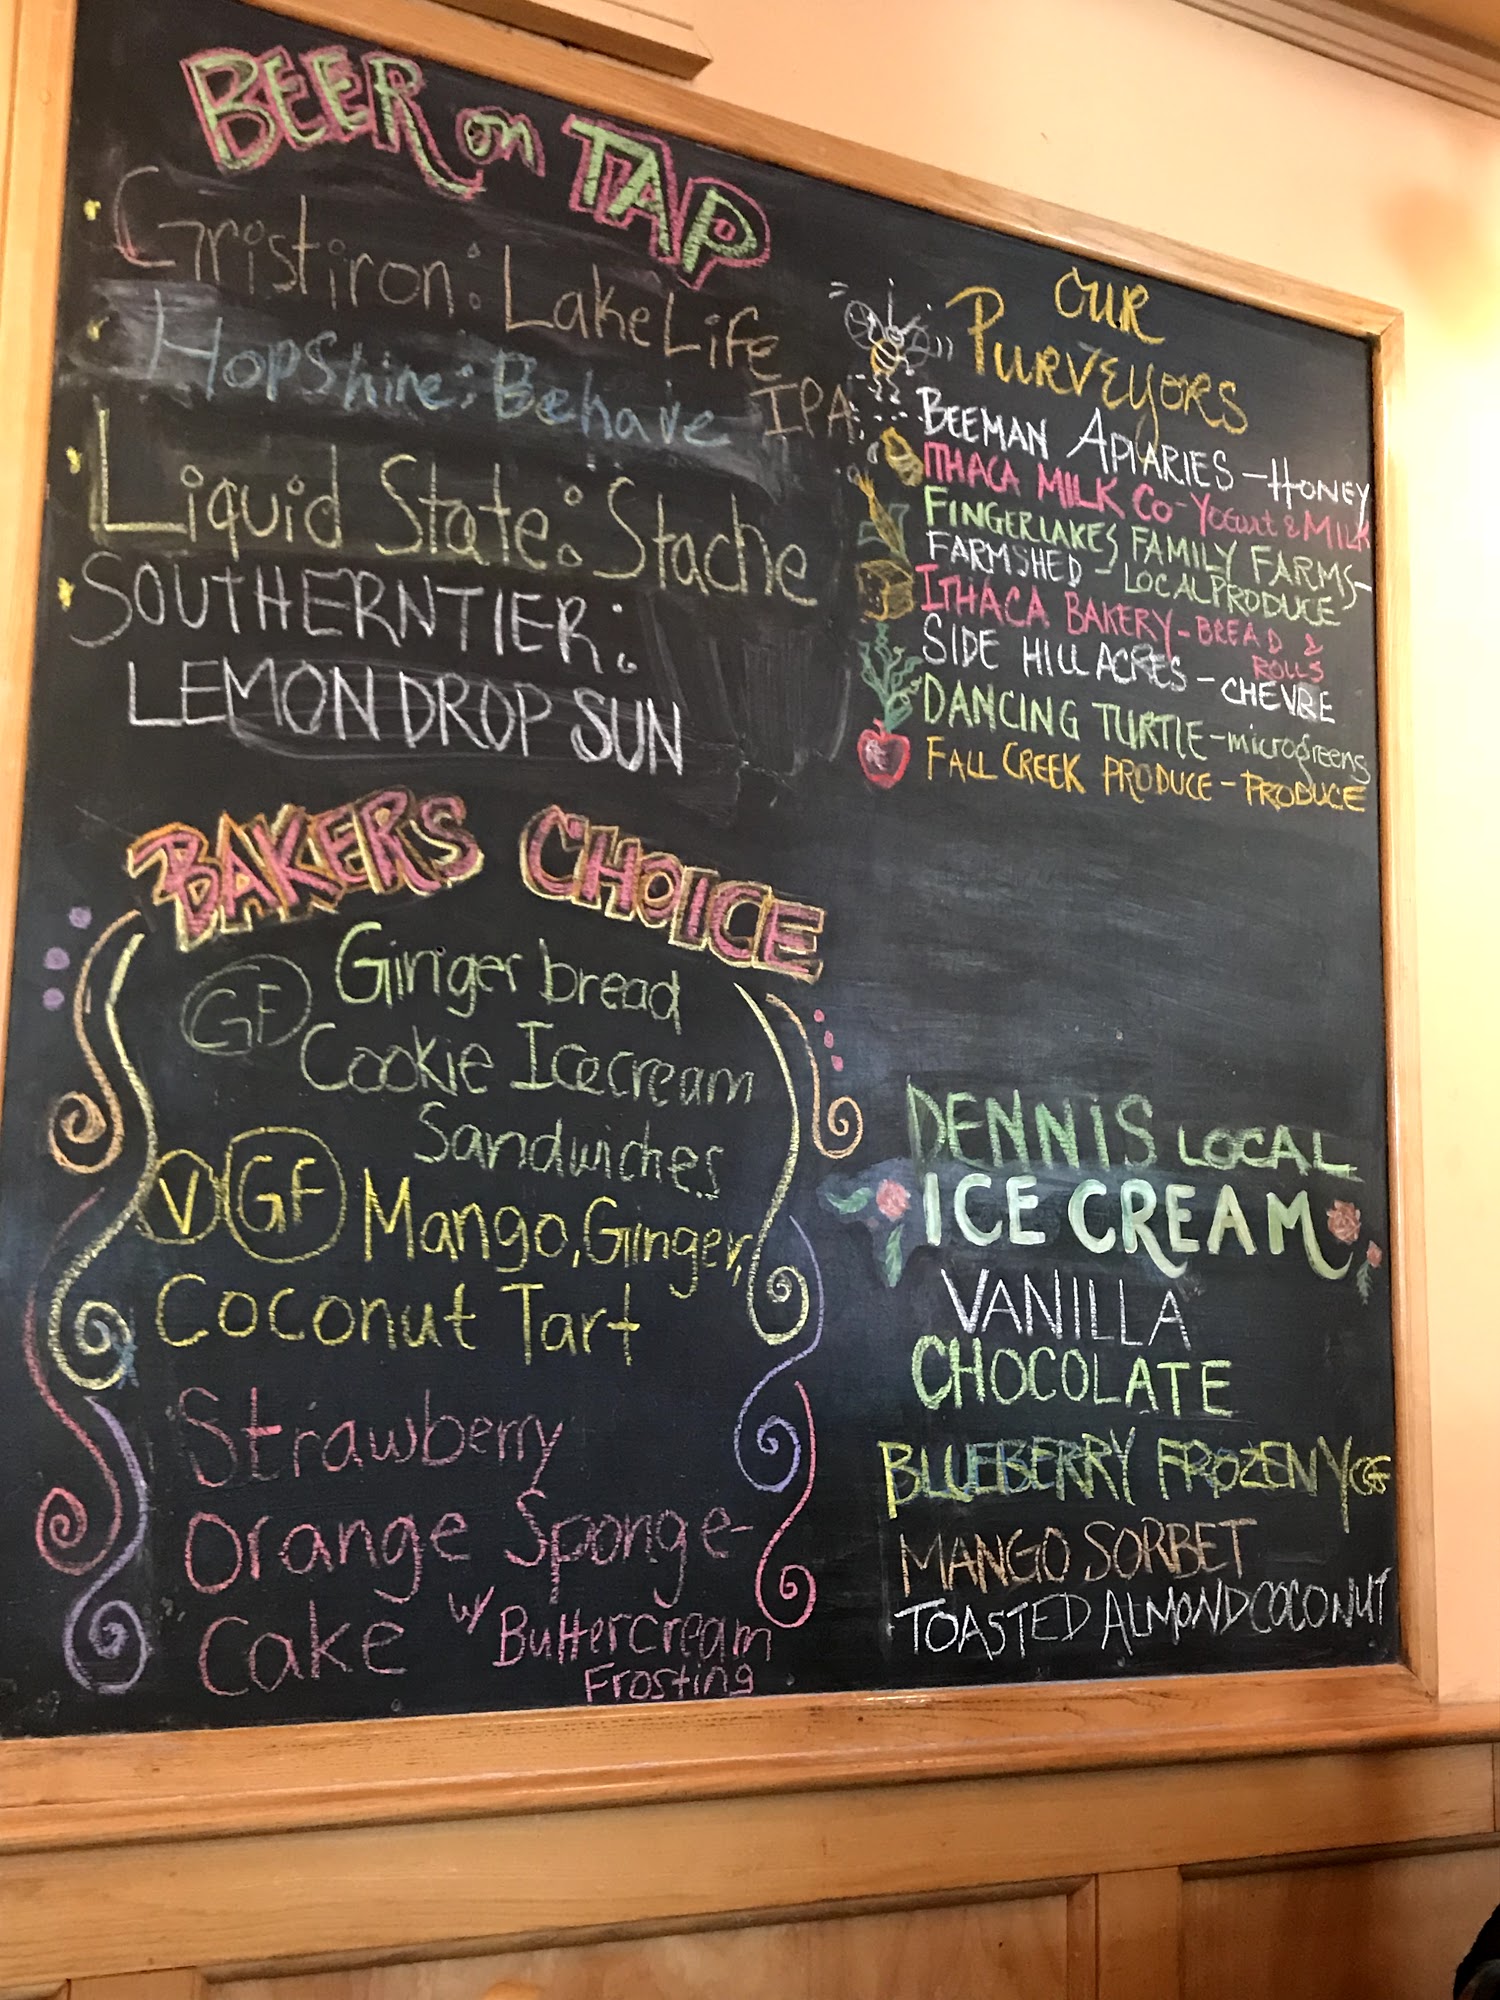 BEER on TAP
Gristiron: LakeLife
IPA
HopShine: Behave
Liquid State: Stache
SOUTHERNTIER:
LEMONDROP SUN
OUR
PURVEYORS
BEEMAN APIARIES - HONEY
ITHACA MILK CO - YOGURT & MILK
FINGERLAKES FAMILY FARMS -
FARMSHED - LOCAL PRODUCE
ITHACA BAKERY - BREAD &
ROLLS
SIDE HILL ACRES - CHEVRE
DANCING TURTLE - microgreens
FALL CREEK PRODUCE - PRODUCE
BAKERS CHOICE
GF Ginger bread
Cookie Icecream
Sandwiches
V GF Mango, Ginger,
Coconut Tart
Strawberry
Orange Sponge-
Cake w/ Buttercream
Frosting
DENNIS LOCAL
ICE CREAM
VANILLA
CHOCOLATE
BLUEBERRY FROZEN Y GF
MANGO SORBET
TOASTED ALMOND COCONUT